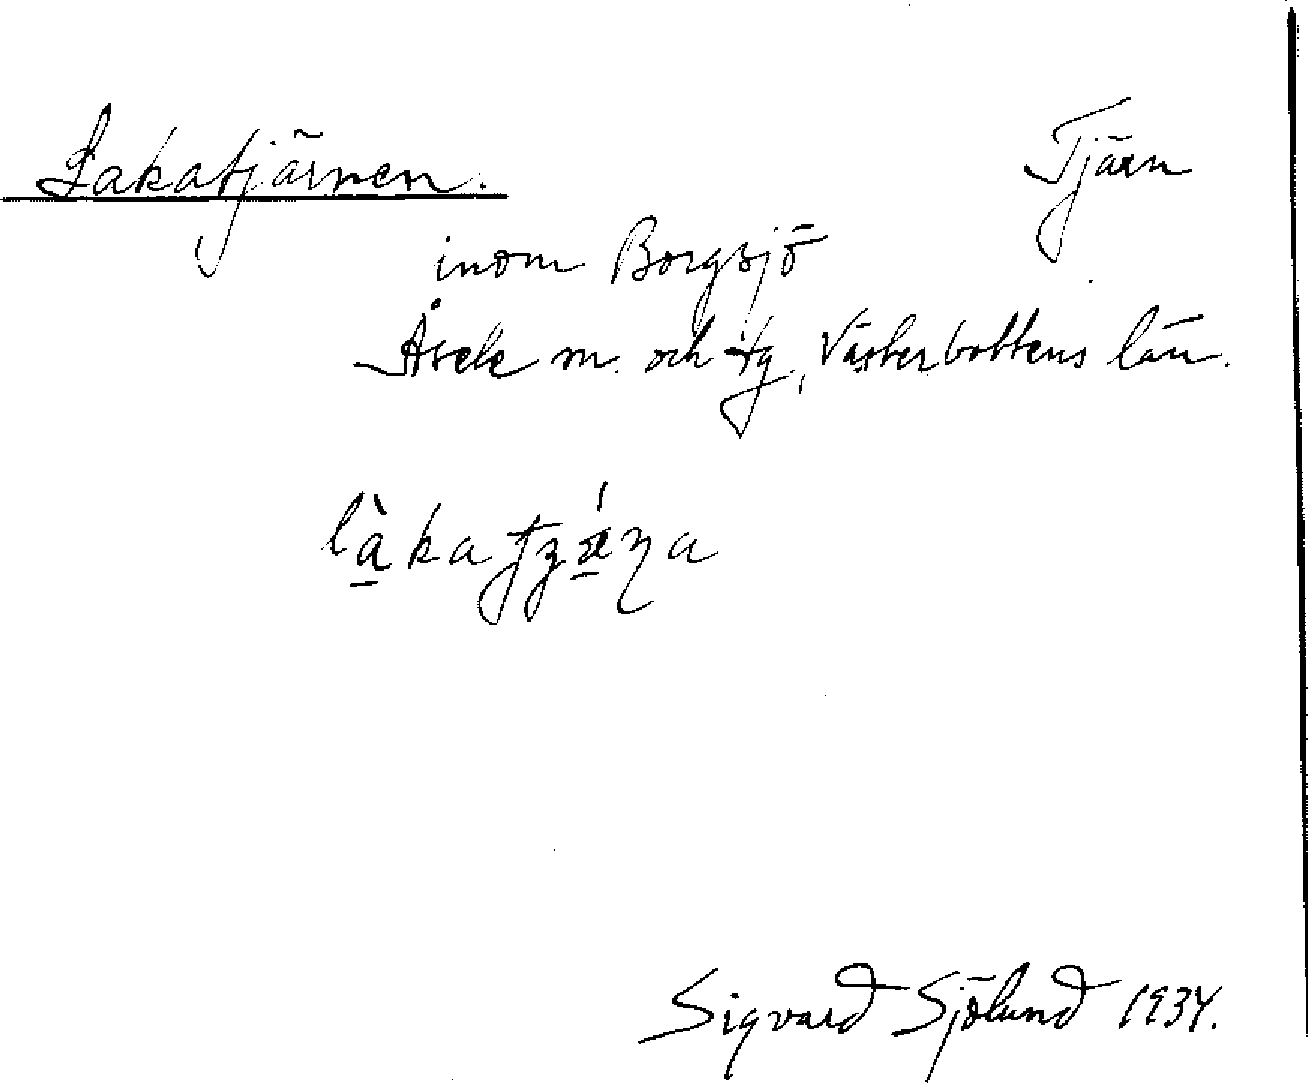 Lakatjärnen. Tjärn
inom Borgsjö
Åsele sn. och tg, Västerbottens län.
Sigvard Sjölund 1934.